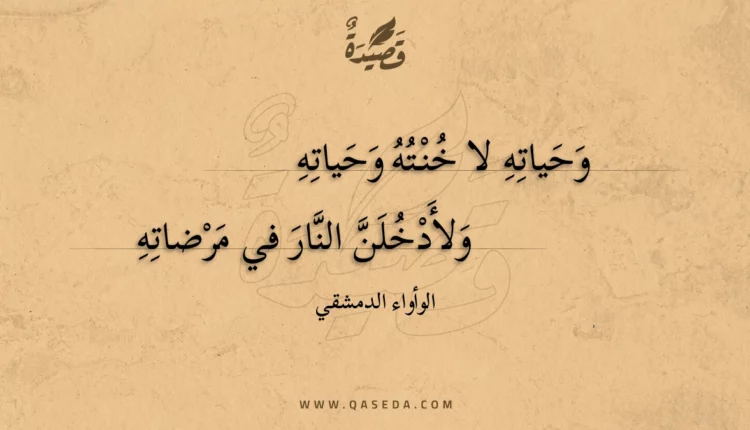 قَصِيدَةٌ
وَحَياتِهِ لا خُنْتُهُ وَحَياتِهِ
وَلأَدْخُلَنَّ النَّارَ في مَرْضاتِهِ
الوأواء الدمشقي
WWW.QASEDA.COM